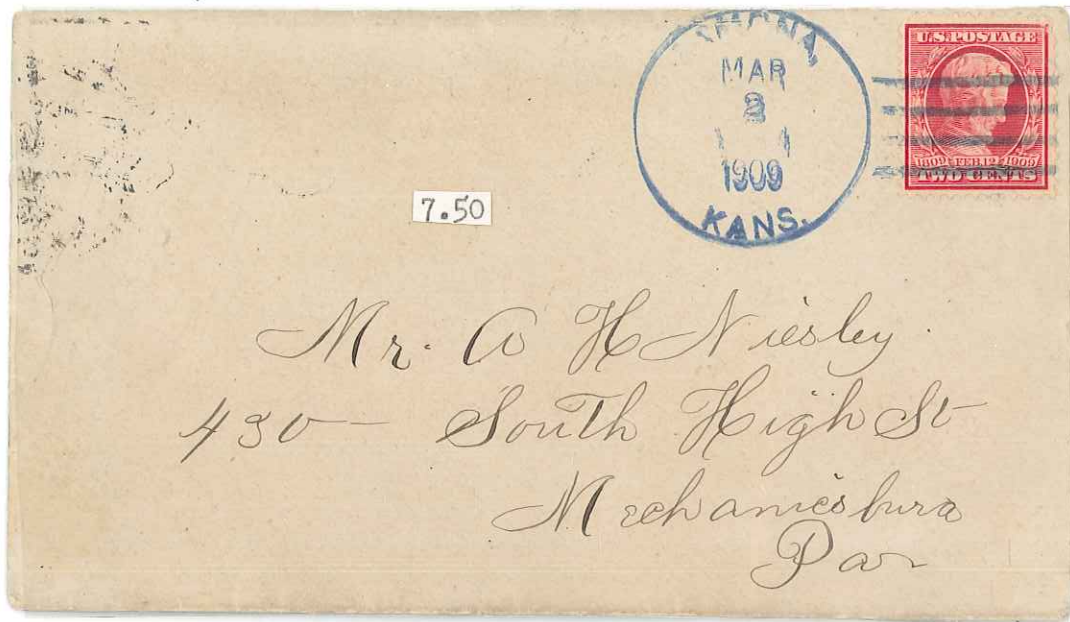 MAR
1909
KANS.
U.S.POSTAGE
1809 FEB.12 1909
TWO CENTS
7.50
Mr. A H Niesley
430 — South High St
Mechanicsburg
Pa